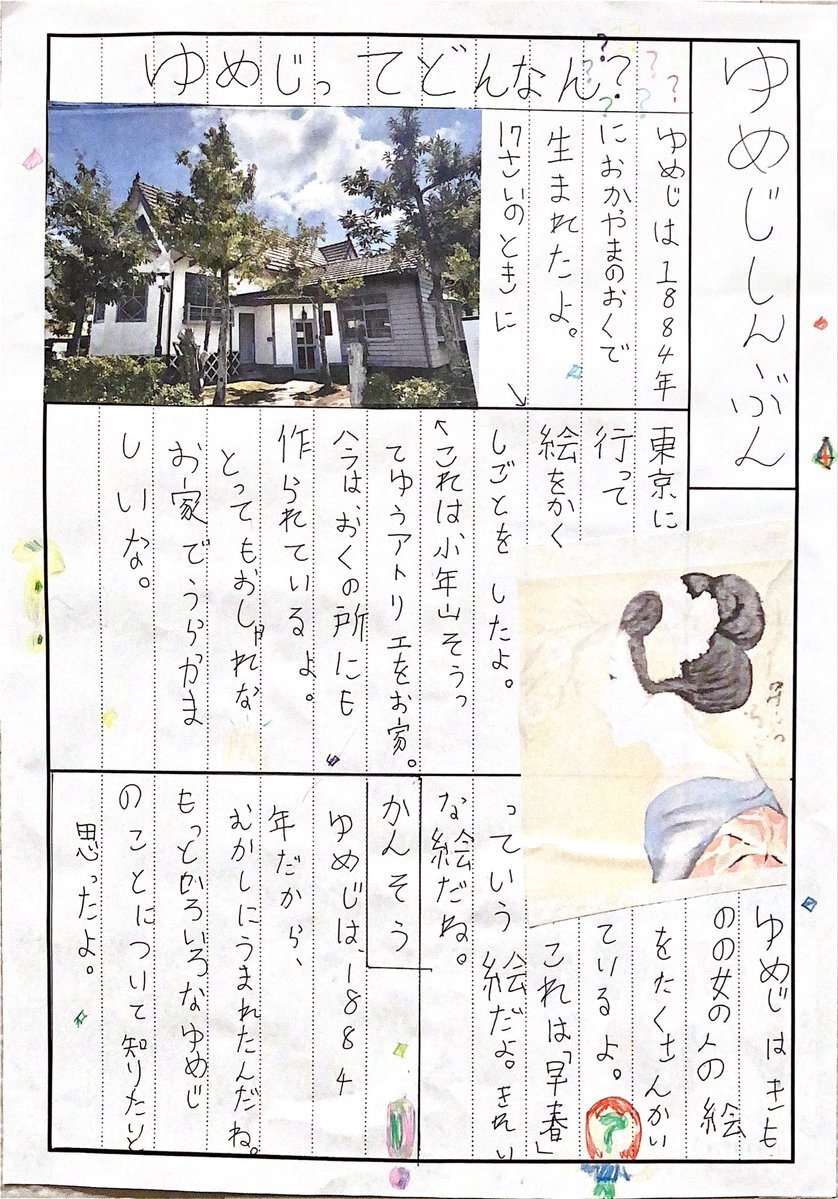 ゆめじしんぶん
ゆめじってどんなん?
ゆめじは1884年
におかやまのおくで
生まれたよ。
17さいのときに
東京に
行って
絵をかく
しごとをしたよ。
←これは、少年山そうっ
てゆうアトリエをお家。
今は、おくの所にも
作られているよ。
とってもおしゃれな
お家でうらやま
しいな。
ゆめじはきも
のの女の人の絵
をたくさんかい
ているよ。
これは「早春」
っていう絵だよ。きれい
な絵だね。
かんそう
ゆめじは、1884
年だから、
むかしにうまれたんだね。
もっといろいろなゆめじ
のことについて知りたいと
思ったよ。